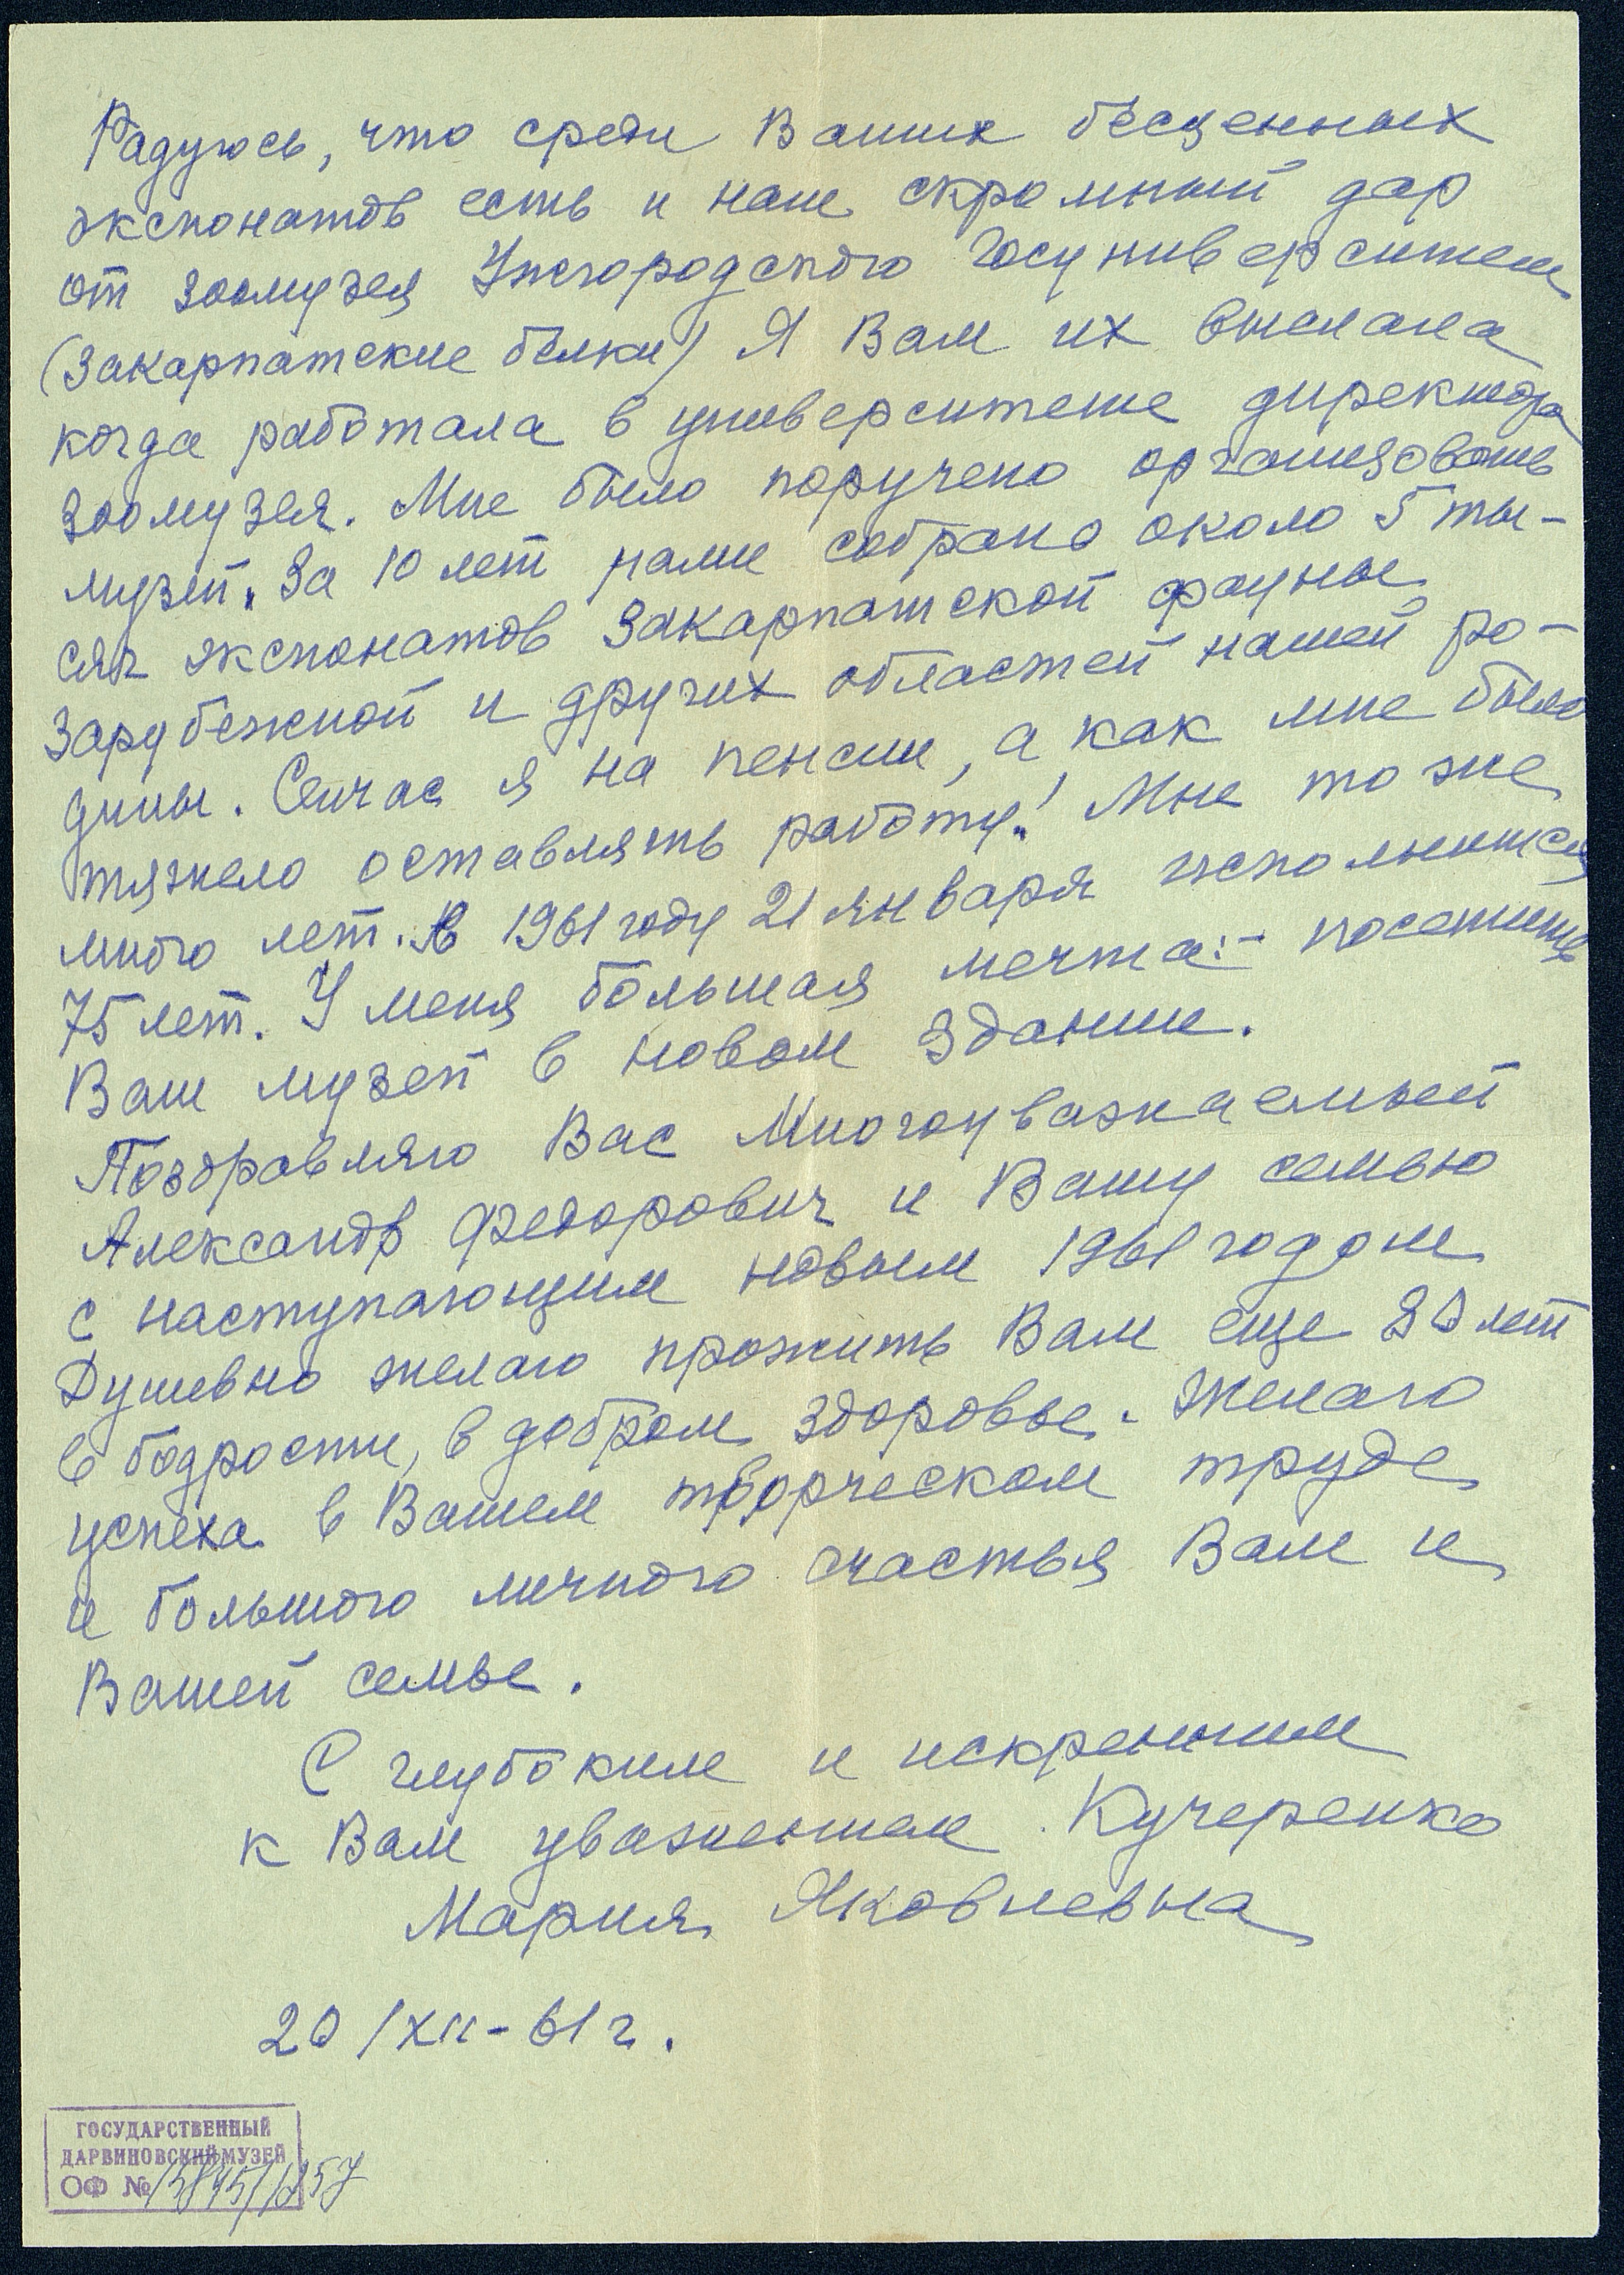 Радуюсь, что среди Ваших бесценных
экспонатов есть и наш скромный дар
от зоомузея Ужгородского Госуниверситета
(Закарпатские белки) Я Вам их выслала
когда работала в университете директора
зоомузея. Мне было поручено организовать
музей. За 10 лет нами собрано около 5 ты-
сяч экспонатов Закарпатской фауны
зарубежной и других областей нашей ро-
дины. Сейчас я на пенсии, а как мне было
тяжело оставлять работу! Мне тоже
много лет. В 1961 году 21 января исполнится
75 лет. У меня большая мечта:- посетить
Ваш музей в новом здании.
Поздравляю Вас Многоуважаемый
Александр Федорович и Вашу семью
с наступающим новым 1961 годом
Душевно желаю прожить Вам еще 80 лет
в бодрости, в добром здоровье. Желаю
успеха в Вашем творческом труде
и большого личного счастья Вам и
Вашей семье.
С глубоким и искренним
к Вам уважением Кучеренко
Мария Яковлевна
20/XII-61г.
ГОСУДАРСТВЕННЫЙ
ДАРВИНОВСКИЙ МУЗЕЙ
ОФ №